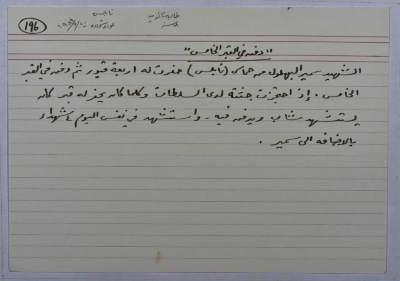 196
نابلس
"دفنه في القبر الخامس"
الشهيد سمير البهلول من حماس (نابلس) حفرت له اربعة قبور ثم دفنه في القبر
الخامس. إذ احتجزت جثته لدى السلطات وكلما كان يحفر له قبر كان
يستشهد شاب ويدفن فيه. واستشهد في نفس اليوم 4 شهداء
بالاضافة الى سمير.